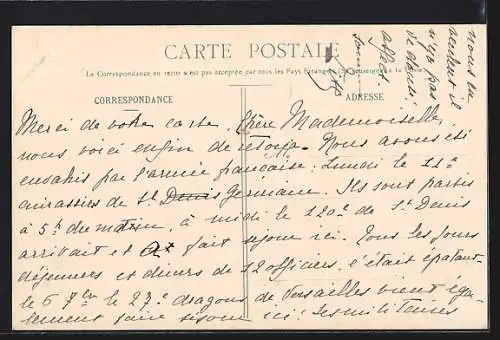 CARTE POSTALE
La Correspondance au recto n'est pas acceptée par tous les Pays Etrangers (Se renseigner à la
CORRESPONDANCE
ADRESSE
Merci de votre carte, Chère Mademoiselle,
nous voici enfin de retour. Nous avons été
envahis par l'armée française : lundi le 11e
cuirassiers de St Denis Germain. Ils sont partis
à 5h du matin, à midi le 120e de St Denis
arrivait et a fait séjour ici. Tous les jours
déjeuners et diners de 12 officiers, c'était épatant.
le 6 7bre le 27e dragons de Versailles vient éga-
lement faire séjour ici : les militaires
nous en
veulent il
n'y a pas
de
affect